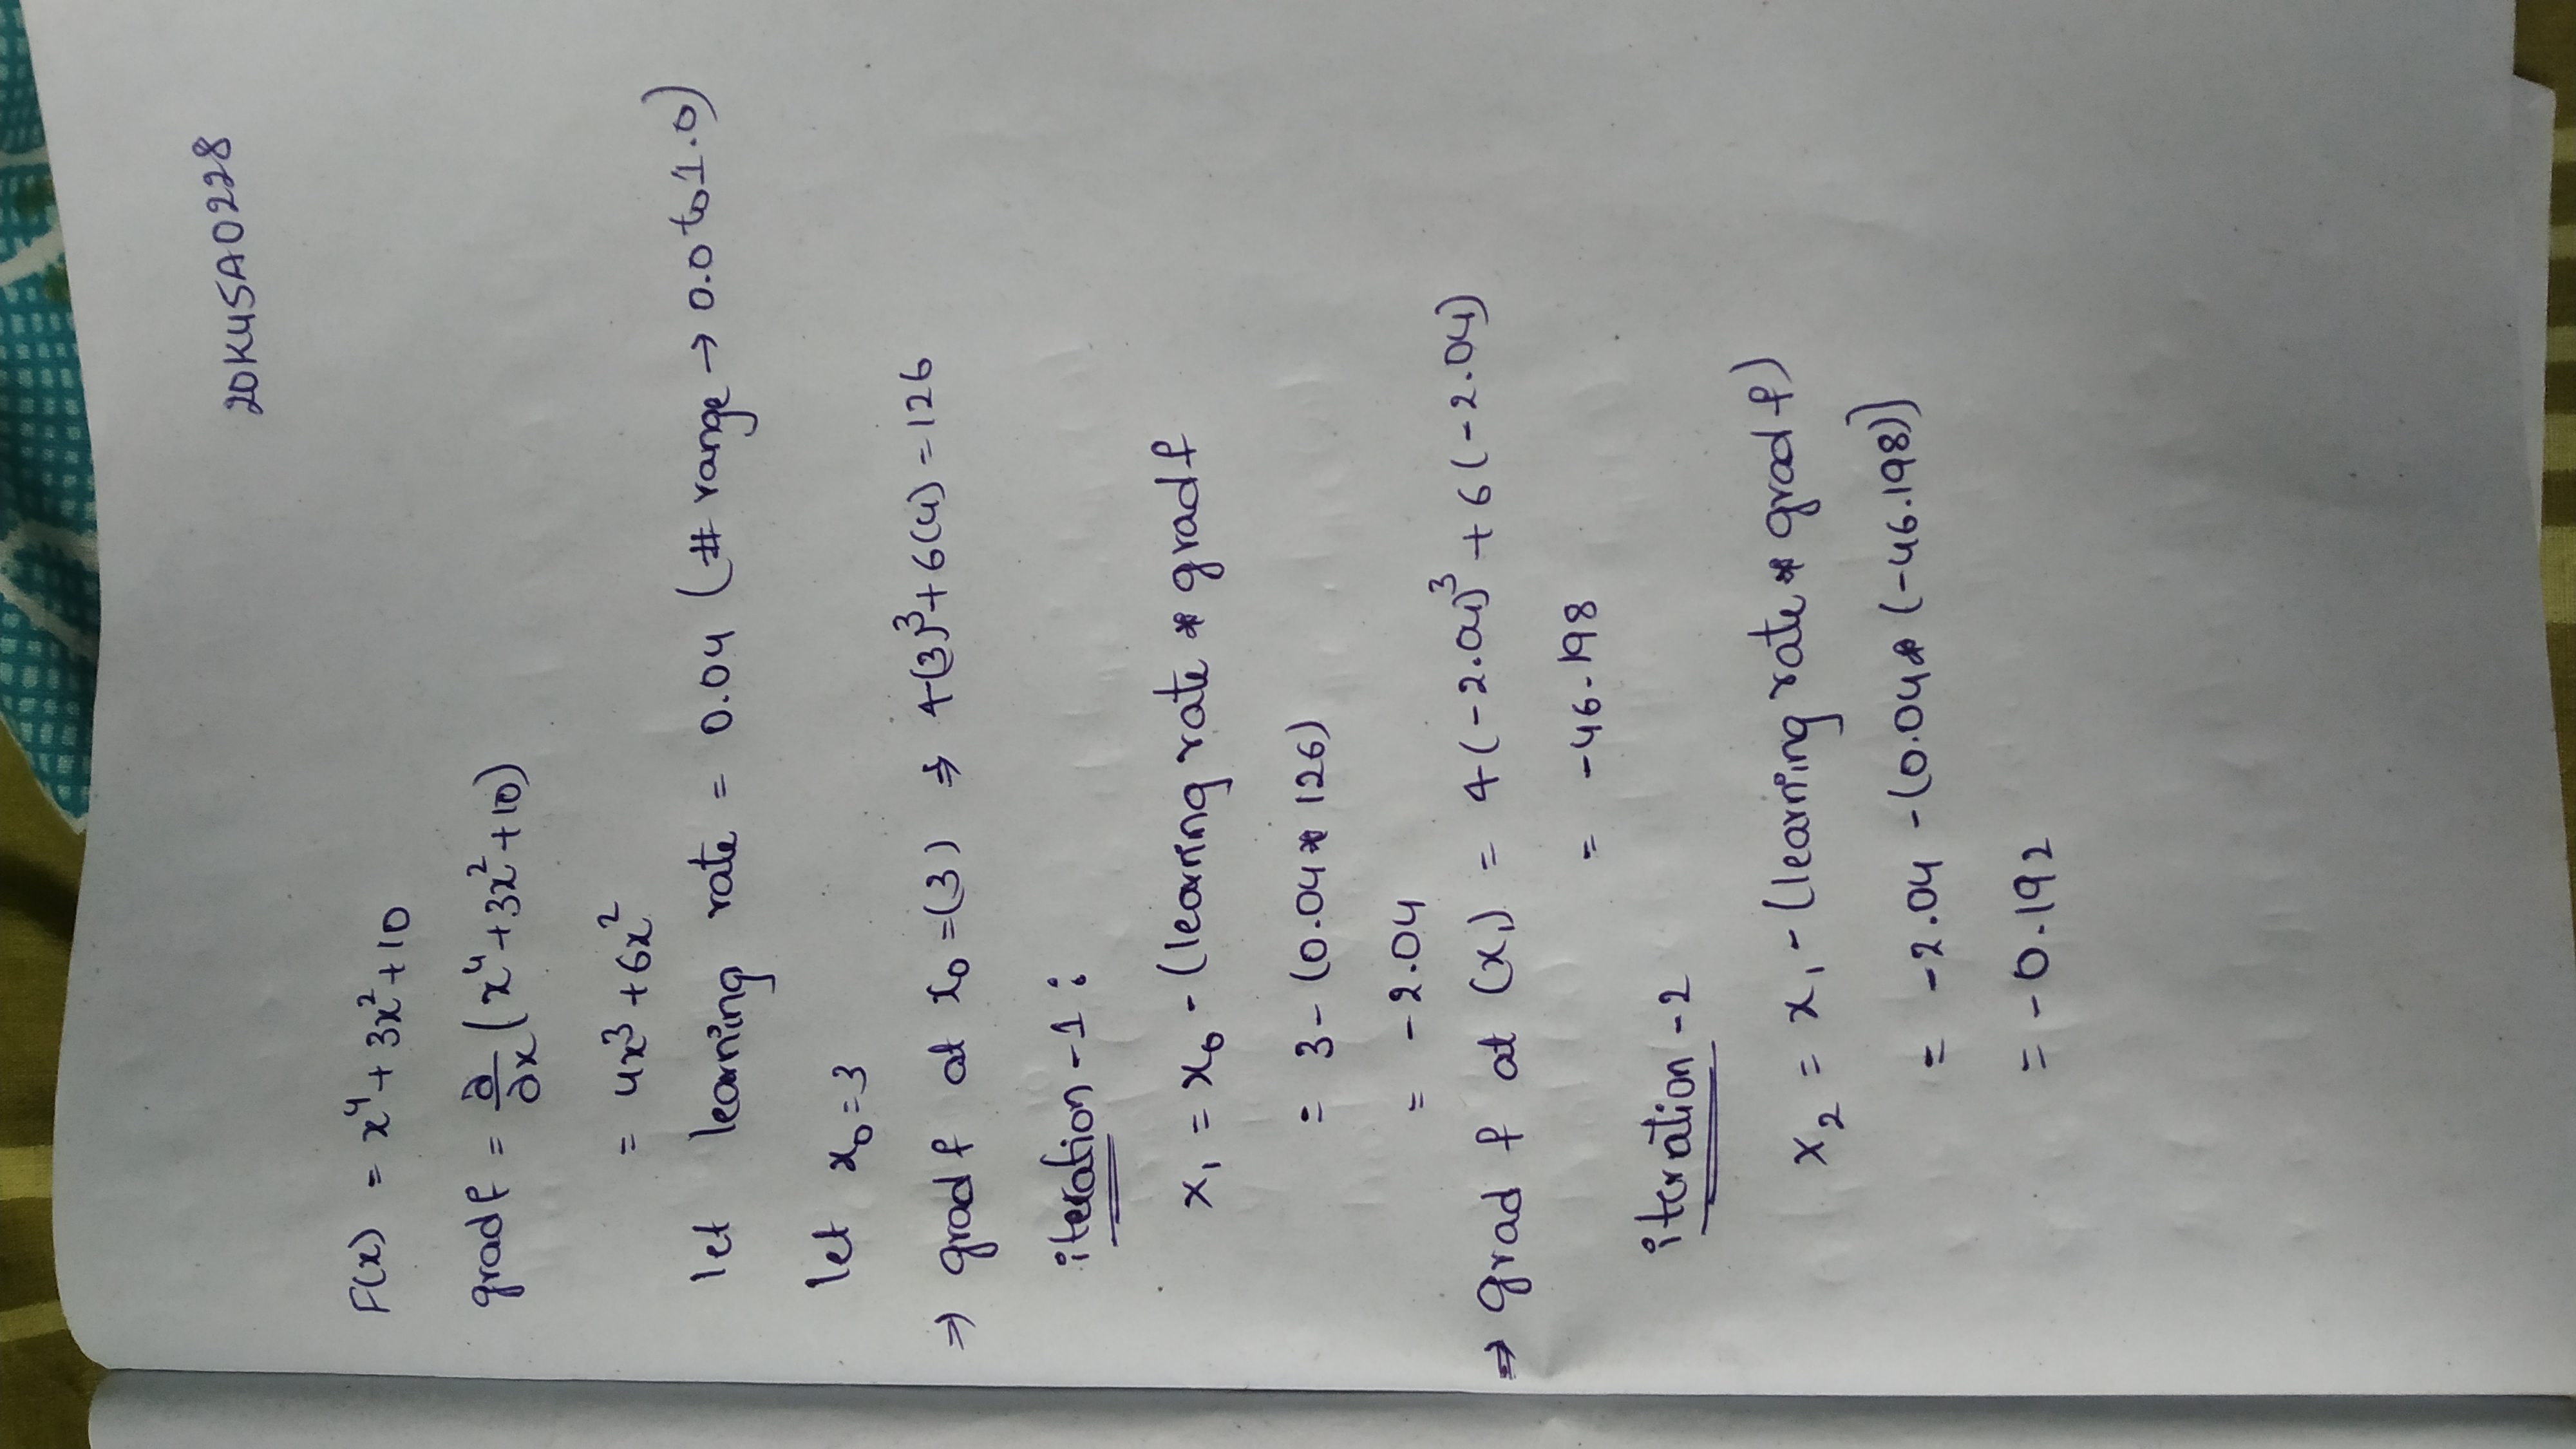 20K45A0228
F(x) = x⁴ + 3x² + 10
grad f = ∂/∂x (x⁴ + 3x² + 10)
= 4x³ + 6x²
let learning rate = 0.04 (# range → 0.0 to 1.0)
let x₀ = 3
⇒ grad f at x₀ = (3) ⇒ 4(3)³ + 6(4) = 126
iteration - 1 :
x₁ = x₀ - (learning rate * grad f
= 3 - (0.04 * 126)
= - 2.04
⇒ grad f at (x₁) = 4(-2.04)³ + 6(-2.04)
= -46.198
iteration - 2
x₂ = x₁ - (learning rate * grad f)
= -2.04 - (0.04 * (-46.198)]
= - 0.192